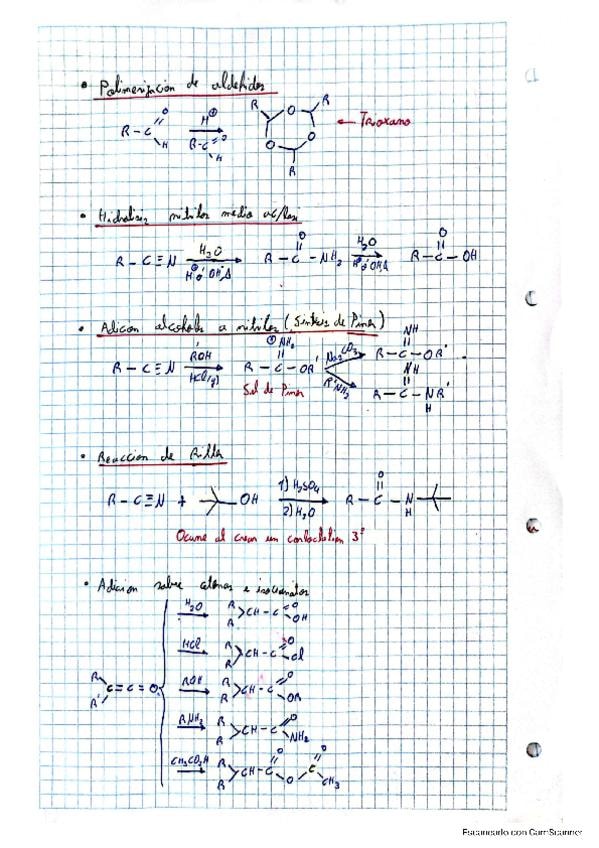 • Polimerización de aldehidos
R-C(=O)-H H⊕ → R-C(=O)-H R O R O R O ← Trioxano
• Hidrolisis nitrilos medio ac/basi
R-C≡N H2O → H⊕ ó OH⁻,Δ R-C(=O)-NH2 H2O → H⊕ ó OH,Δ R-C(=O)-OH
• Adicion alcoholes a nitrilos (Sintesis de Piner)
R-C≡N R'OH → HCl(g) R-C(=⊕NH2)-OR' Na2CO3 → R-C(=NH)-OR'
Sal de Piner R'NH2 → R-C(=NH)-NR' H
• Reaccion de Ritter
R-C≡N + OH 1) H2SO4 → 2) H2O R-C(=O)-N H
Ocurre al crear un carbocation 3º
• Adicion sobre cetenas e isocianatos
H2O → R R >CH-C(=O)-OH
HCl → R R >CH-C(=O)-Cl
R R' >C=C=O ROH → R R >CH-C(=O)-OR
RNH2 → R R >CH-C(=O)-NH2
CH3CO2H → R R >CH-C(=O)-O-C(=O)-CH3
Escaneado con CamScanner